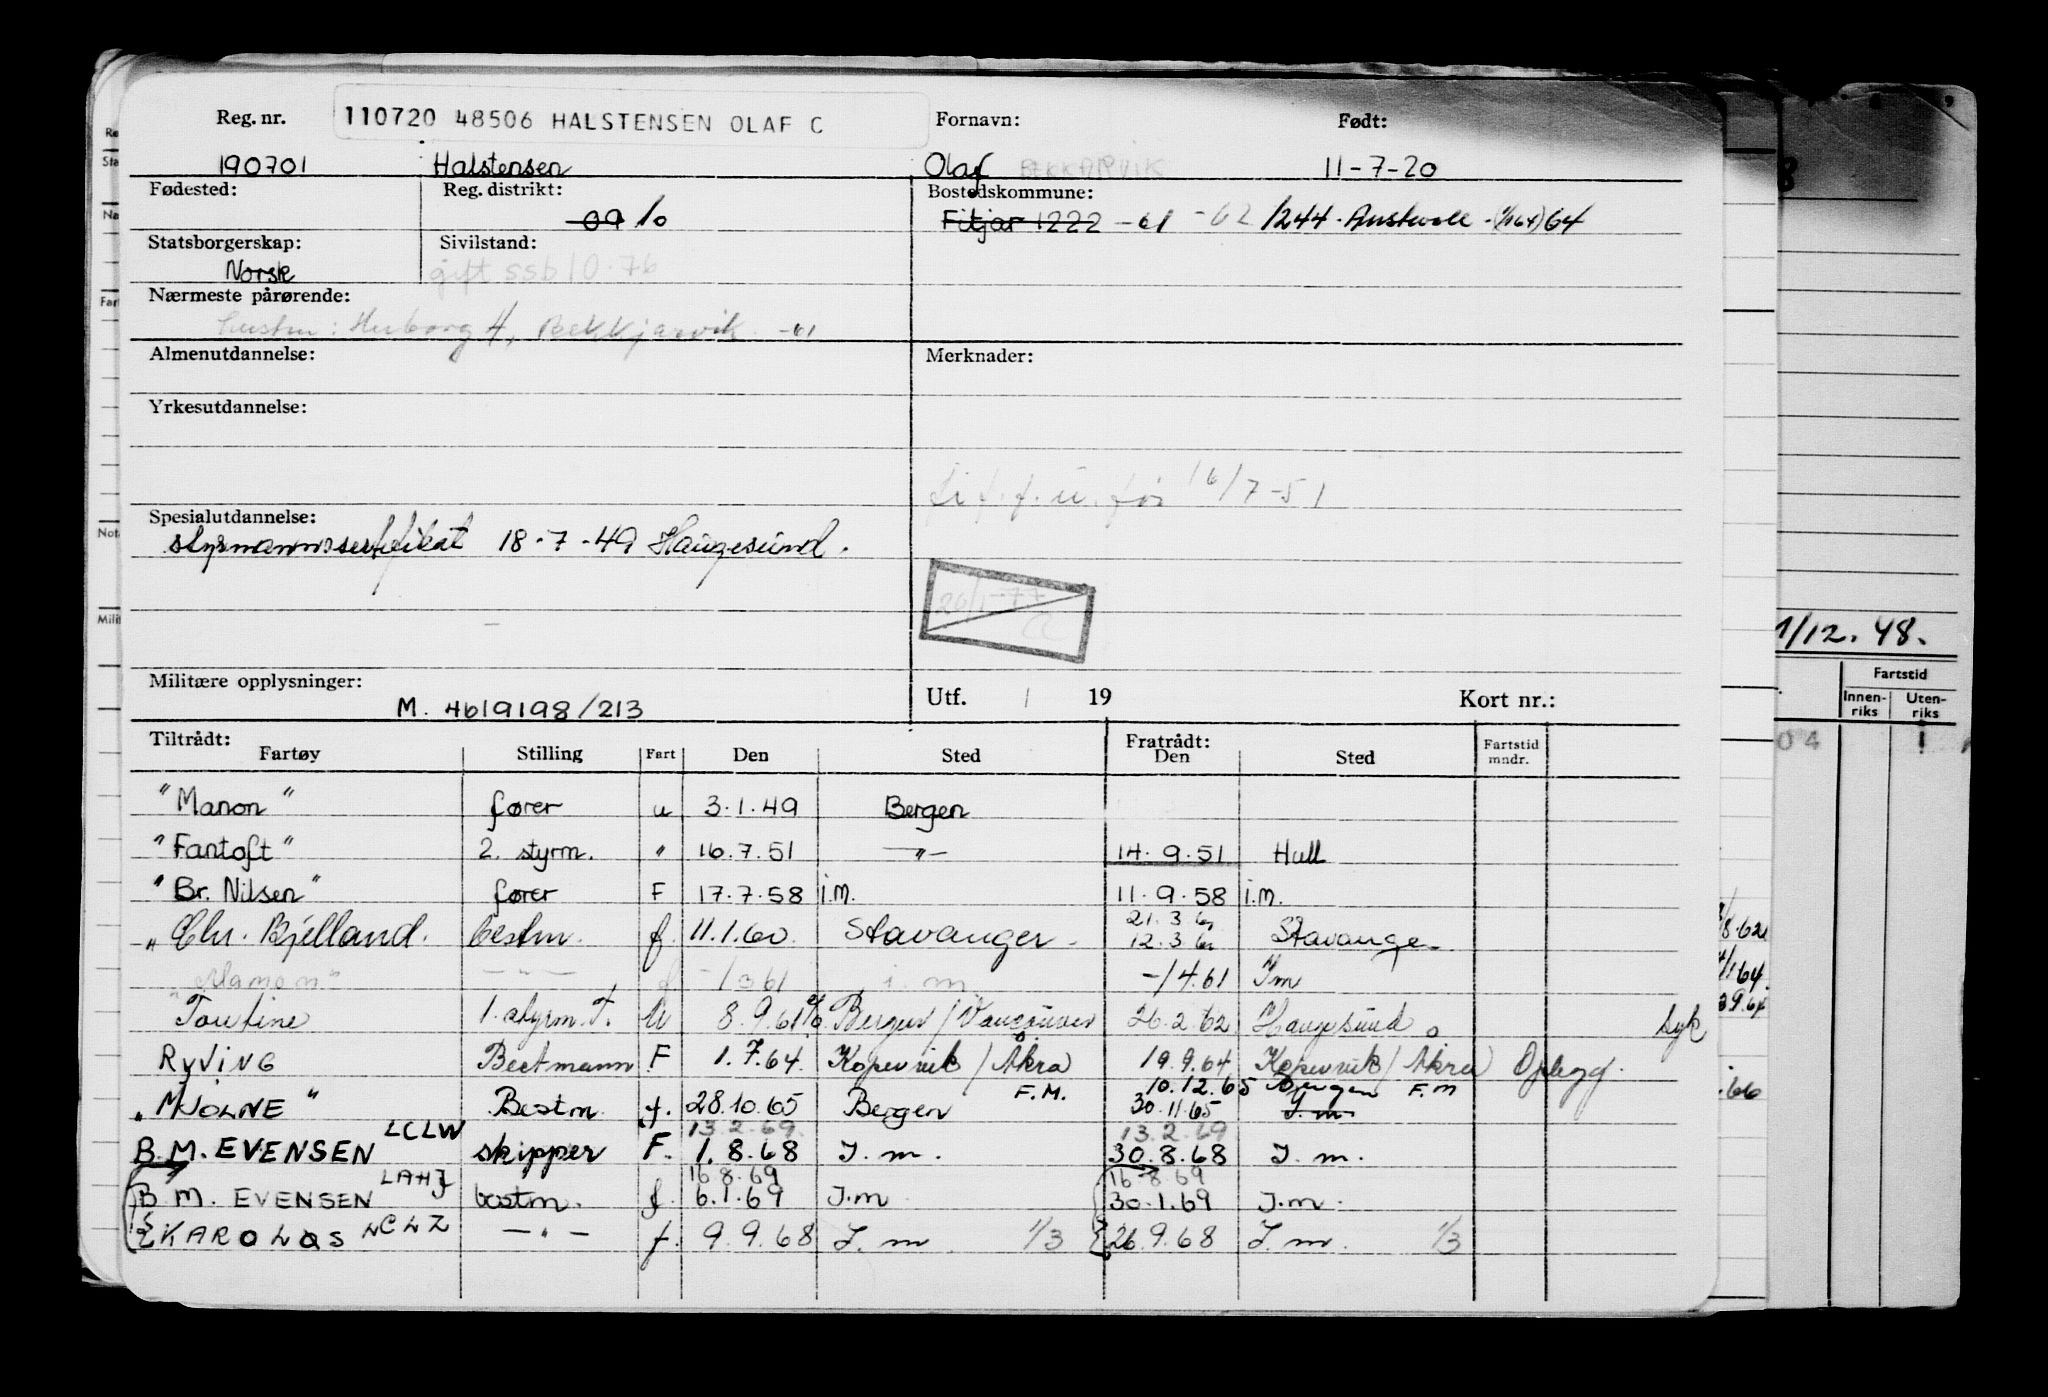 Reg. nr. 110720 48506 HALSTENSEN OLAF C Fornavn: Født:
190701 Halstensen Olaf BEKKARVIK 11-7-20
Fødested: Reg. distrikt: Bostedskommune:
09 10 Fitjar 1222 -61 -62 1244 Austevoll 64
Statsborgerskap: Sivilstand:
Norsk gift ssb 10.76
Nærmeste pårørende:
hustru: H, Bekkjarvik -61
Almenutdannelse: Merknader:
Yrkesutdannelse:
16/7-51
Spesialutdannelse:
styrmannssertifikat 18-7-49 Haugesund.
20/1-77
Militære opplysninger: Utf. / 19 Kort nr.:
M. 4619198/213
Tiltrådt: Fratrådt:
Fartøy Stilling Fart Den Sted Den Sted Fartstid mndr.
"Manon" fører u 3.1.49 Bergen
"Fantoft" 2. styrm. " 16.7.51 —"— 14.9.51 Hull
"Br. Nilsen" fører F 17.7.58 i.m. 11.9.58 i.m.
21.3 61
"Chr. Bjelland. bestm. f. 11.1.60 Stavanger 12.3 61 Stavanger
"Manon" —"— f -/361 i.m. -/4.61 Im
Toutine 1. styrm. T. U 8.9.61 Bergen / Vancouver 26.2.62 Haugesund syk
RyVING Bestmann F 1.7.64. Kopervik / Åkra 19.9.64 Kopervik / Åkra Opplegg.
F.M. 10.12.65 Bergen F.M
"MJOLNE" Bestm. f. 28.10.65 Bergen 30.11.65 I.m
LCLW 13.2.69. 13.2.69
B.M. EVENSEN skipper F. 1.8.68 I.m. 30.8.68 I.m.
LAHJ 16.8.69 16-8.69
B.M. EVENSEN bestm. f. 6.1.69 I.m 30.1.69 I.m.
& KAROLOS LCLZ —"— f. 9.9.68 I.m. 1/3 26.9.68 I.m. 1/3
1/12.48.
Fartstid
Innen-riks Uten-riks
04